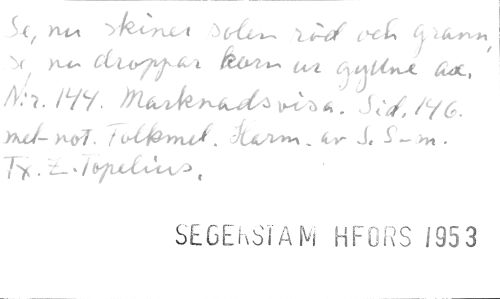 Se, nu skiner solen röd och grann,
se, nu droppar korn ur gyllne ax.
N:r. 144. Marknadsvisa. Sid. 146.
mel-not. Folkmel. Harm. av S. S-m.
Tx. Z. Topelius.
SEGERSTAM HFORS 1953